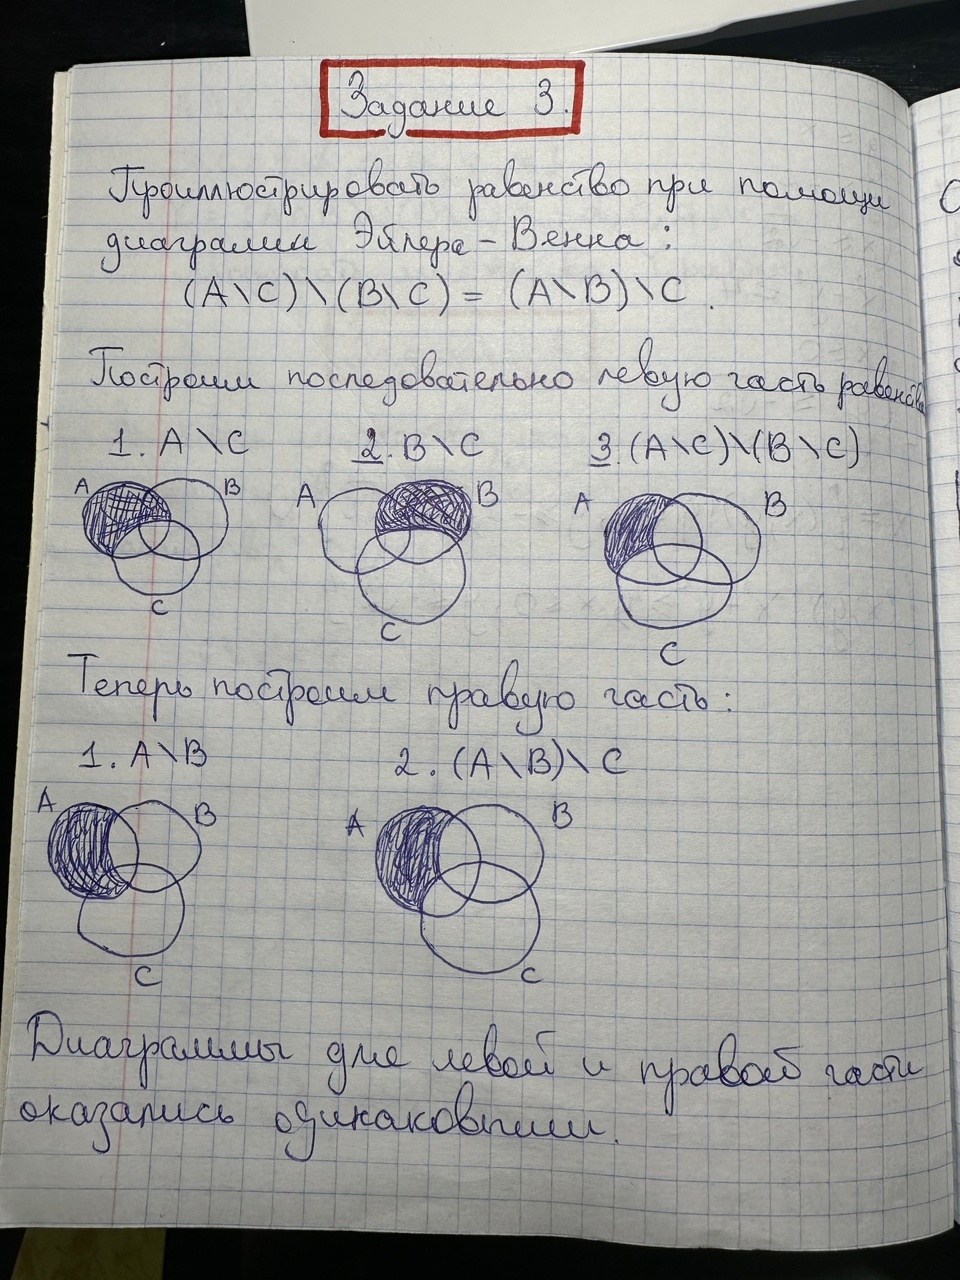 Задание 3.
Проиллюстрировать равенство при помощи
диаграмм Эйлера-Венна:
(A\C)\(B\C) = (A\B)\C.
Построим последовательно левую часть равенства
1. A\C 2. B\C 3. (A\C)\(B\C)
A B A B A B
C C C
Теперь построим правую часть:
1. A\B 2. (A\B)\C
A B A B
C C
Диаграммы для левой и правой части
оказались одинаковыми.